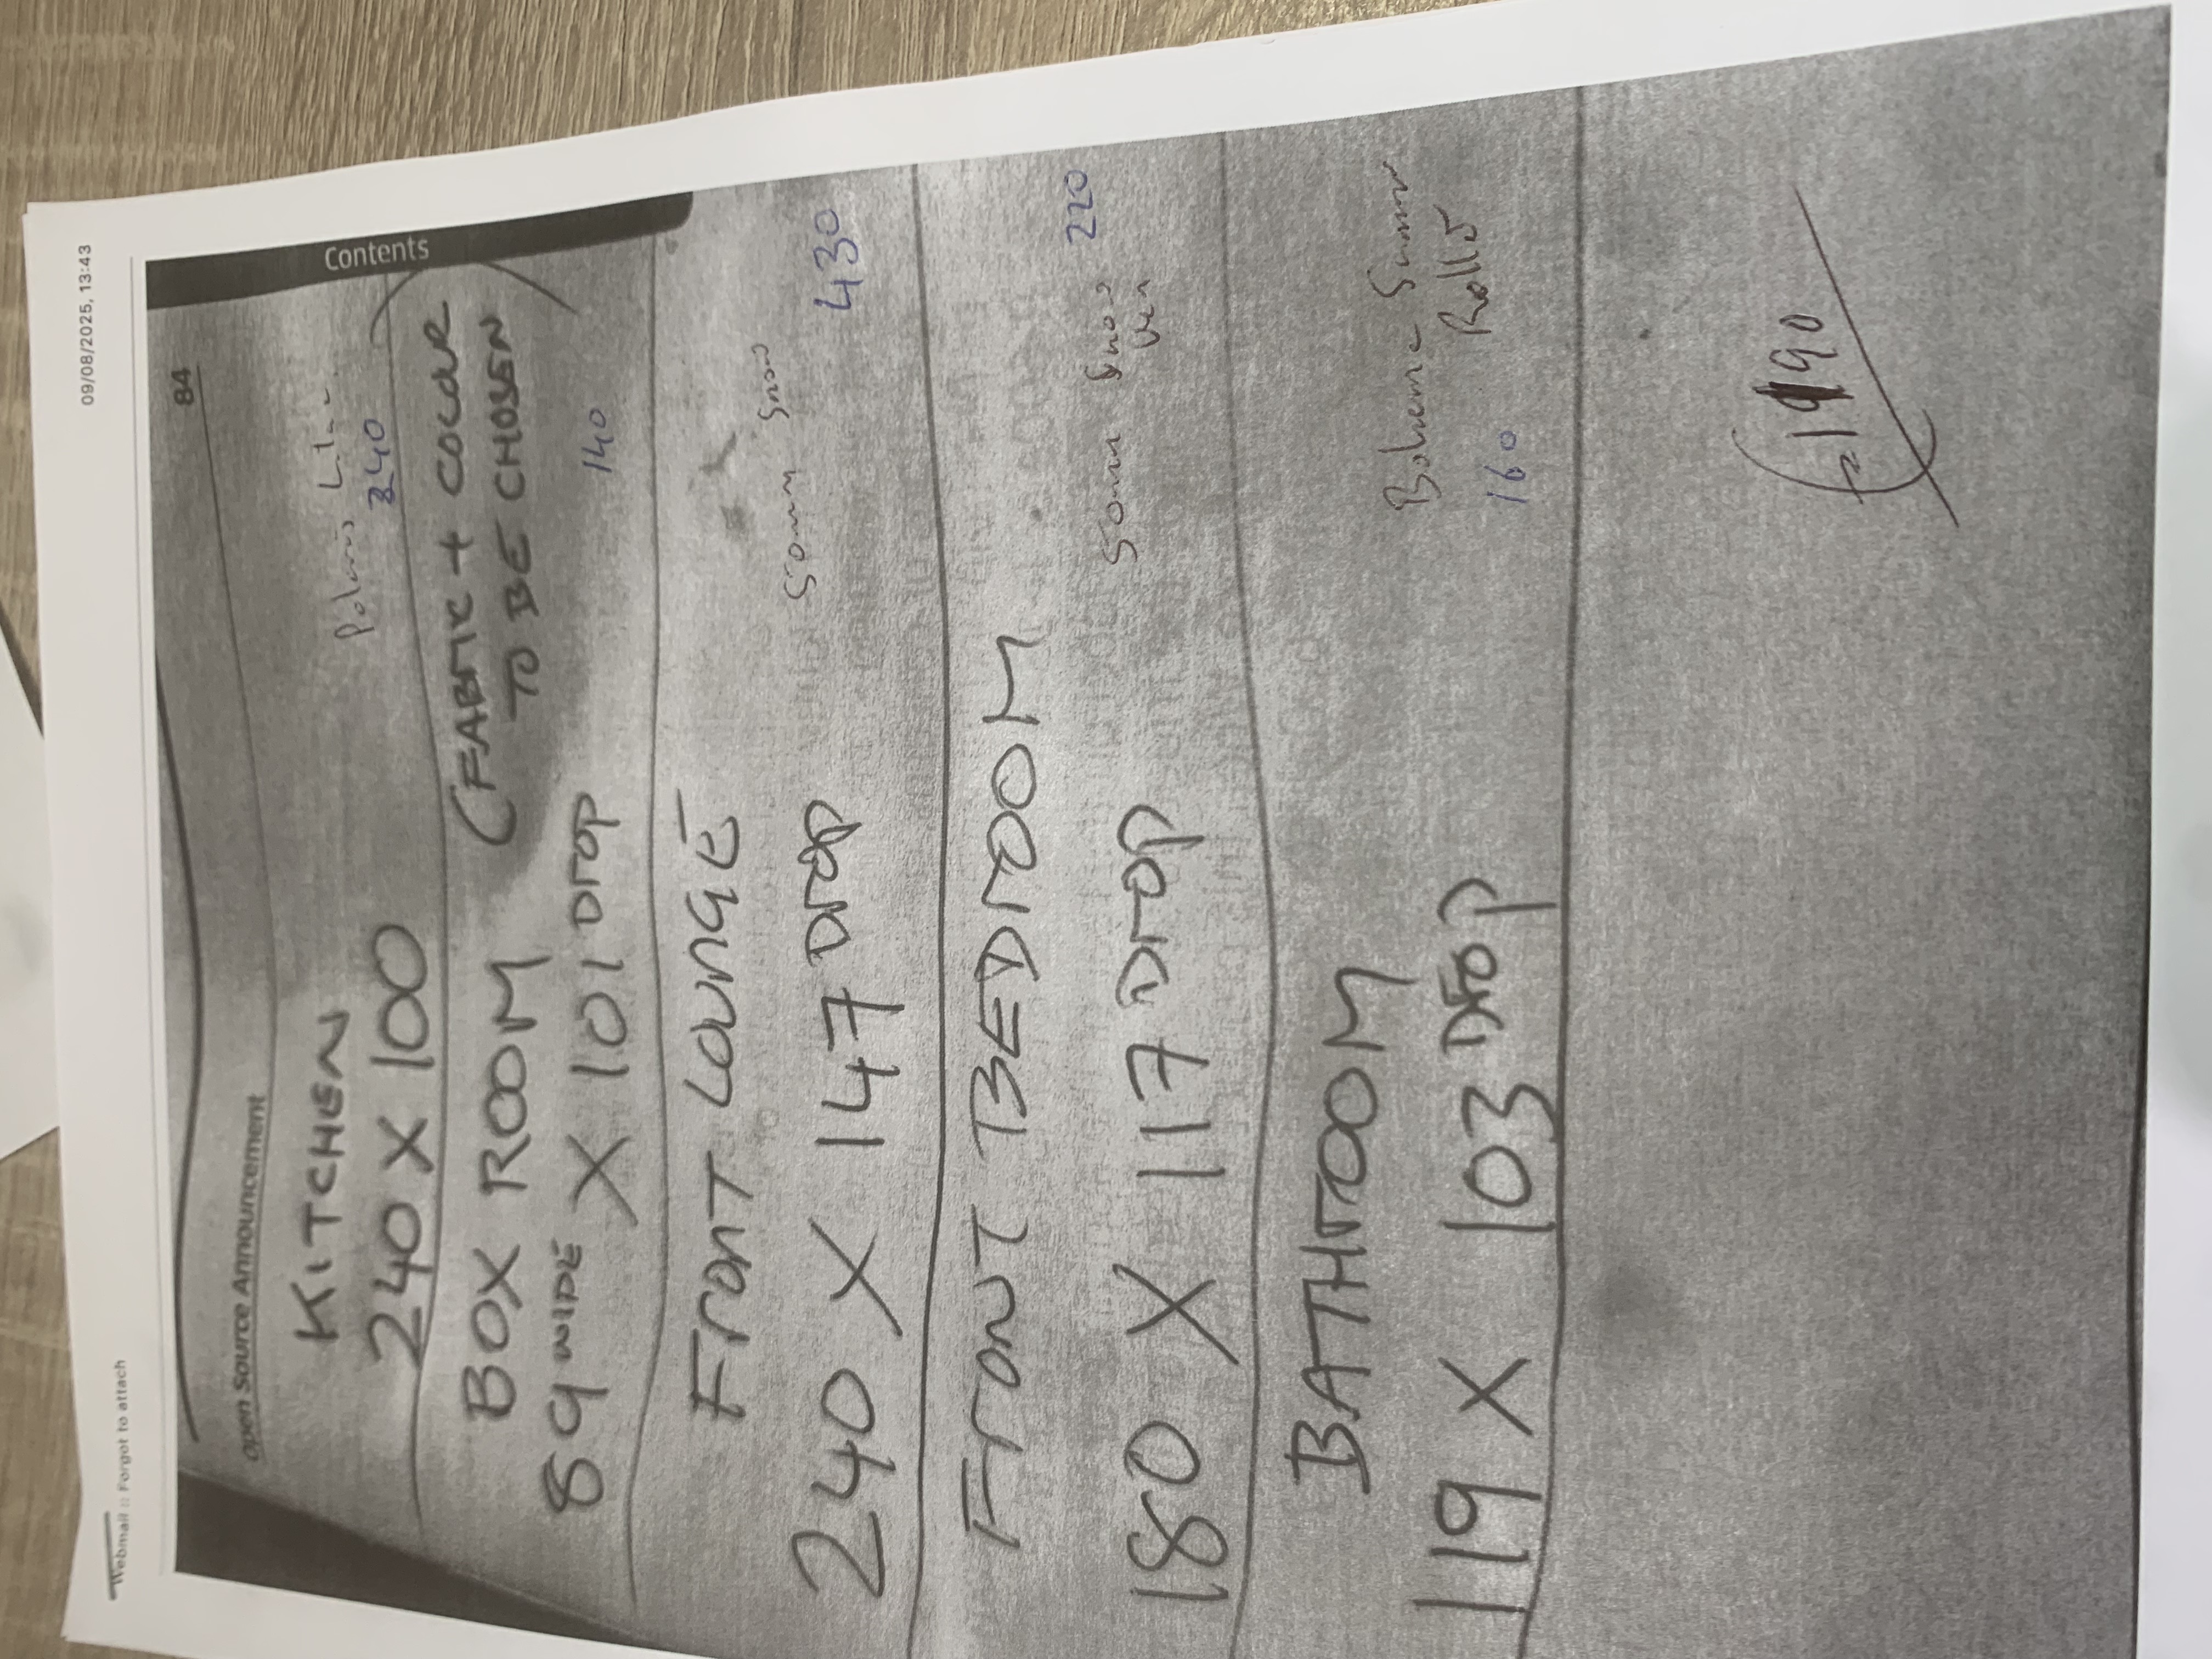 09/08/2025, 13:43
Webmail :: Forgot to attach
84
Open Source Announcement
Contents
KITCHEN
Polaris
240 X 100
240
BOX ROOM (FABRIC + COLOUR
TO BE CHOSEN)
89 WIDE X 101 DROP
140
FRONT LOUNGE
Snow
240 X 147 DROP
430
FRONT BEDROOM
220
180 X 117 DROP
BATHROOM
119 X 103 DROP
160
1190